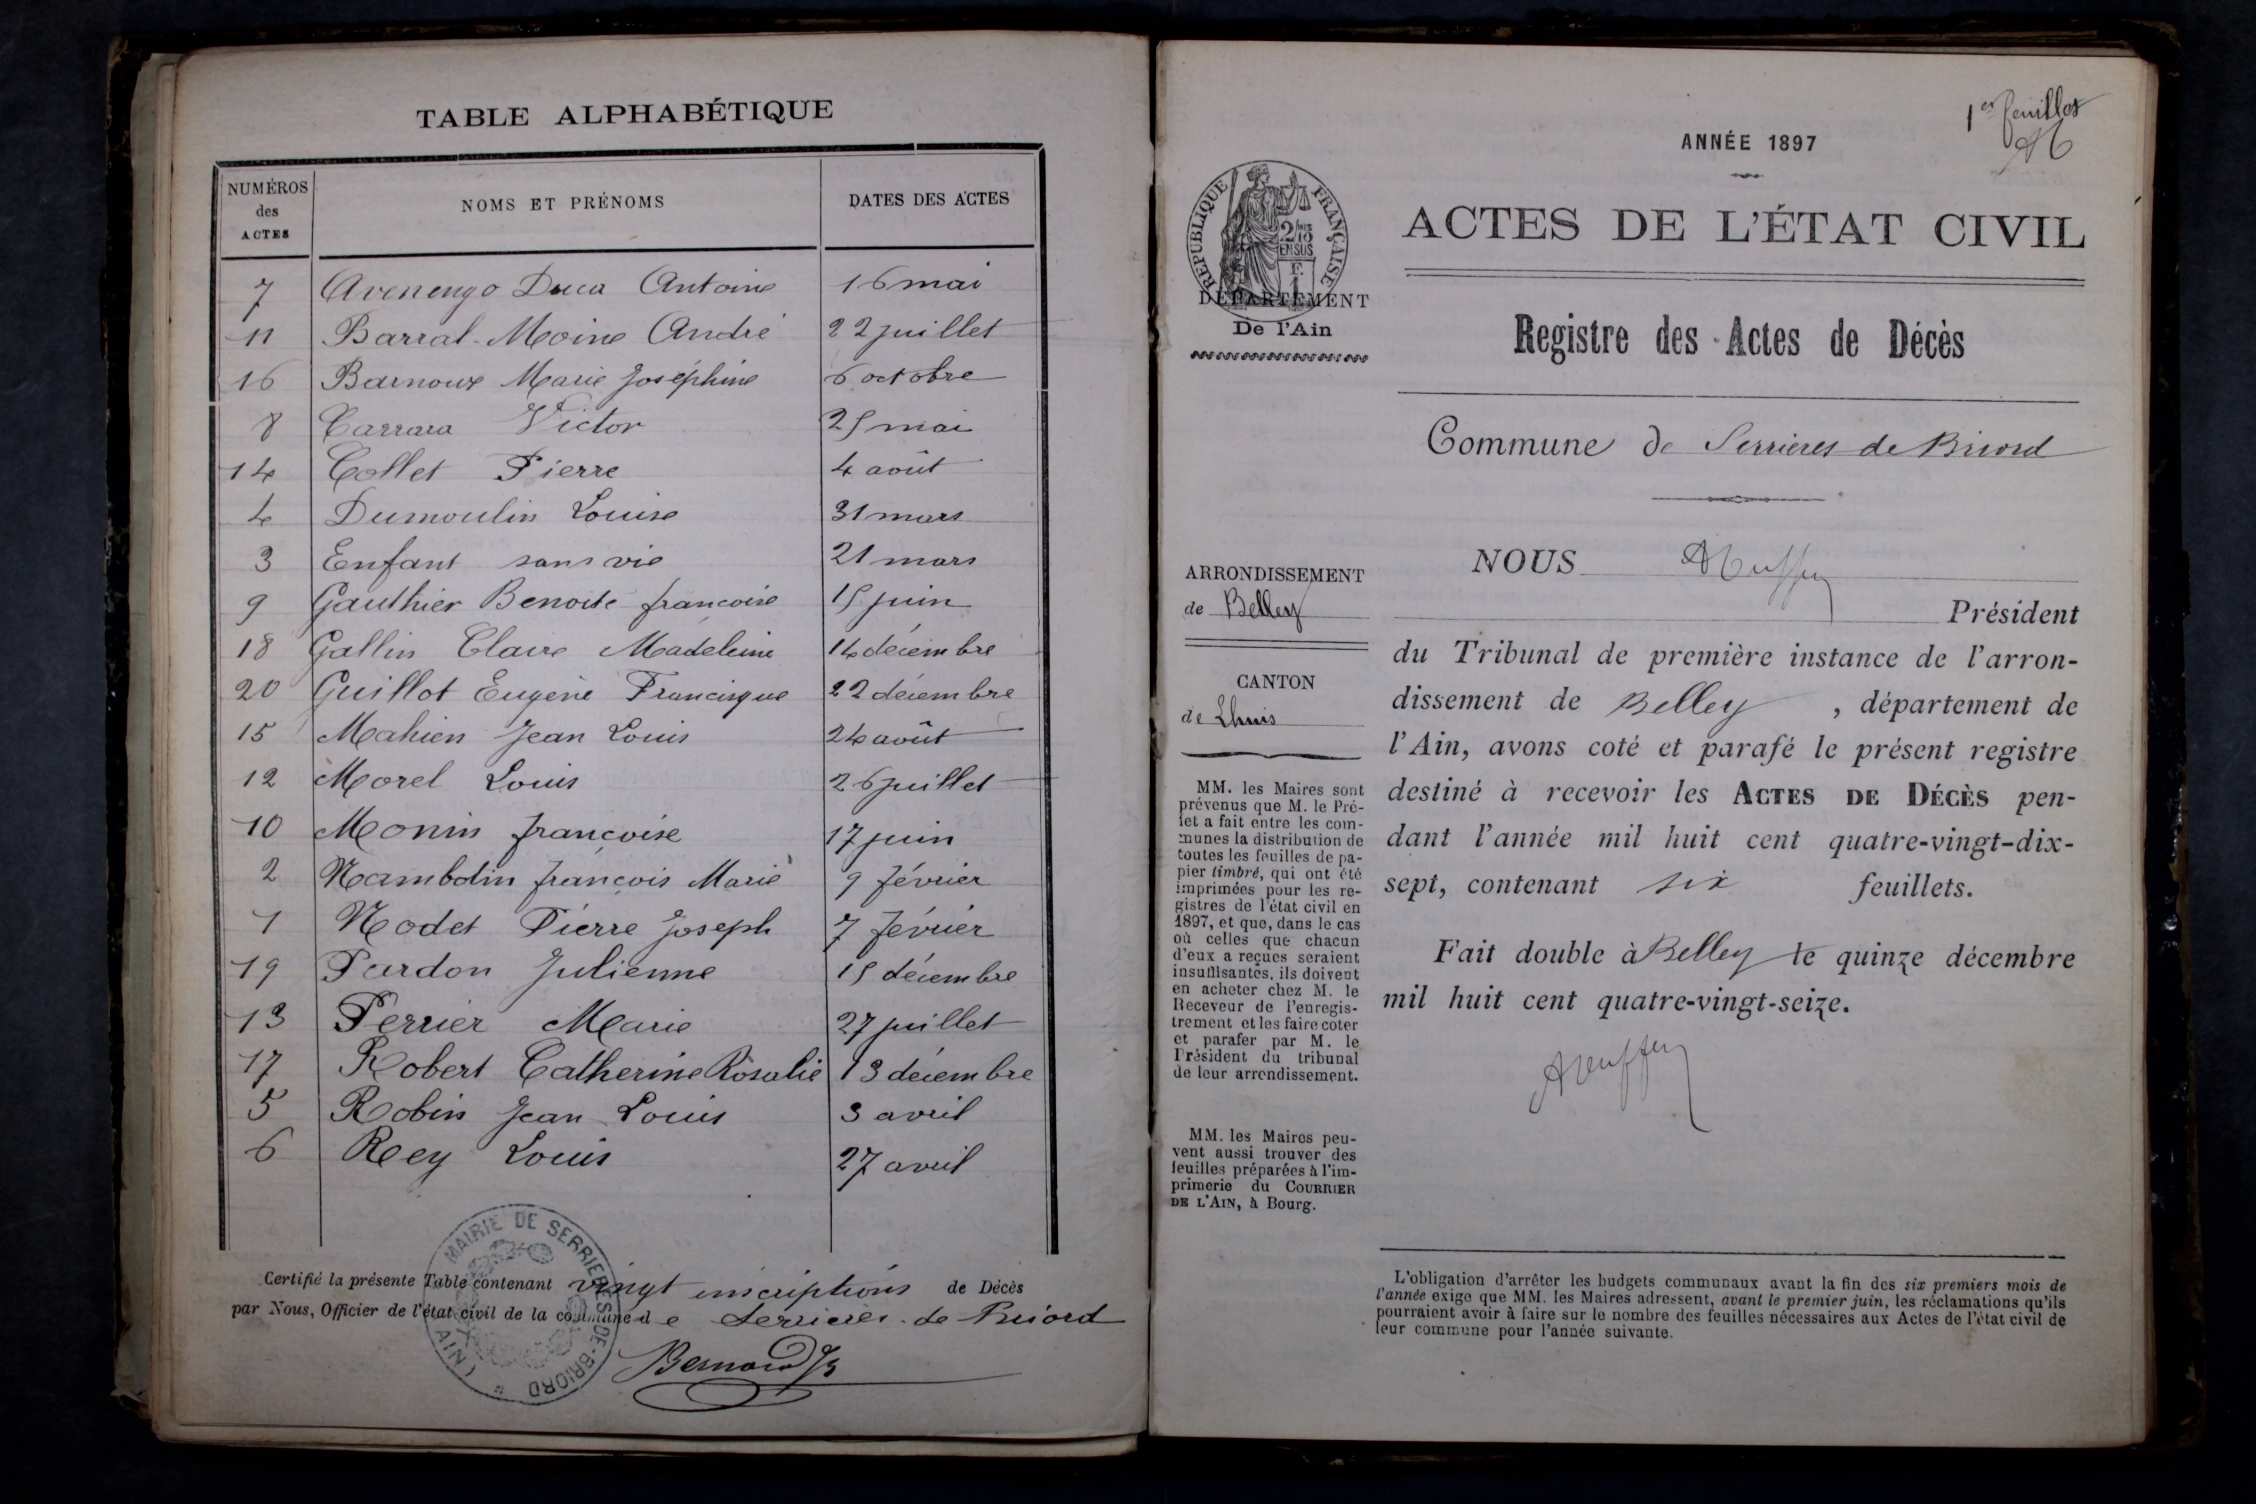 TABLE ALPHABÉTIQUE
NUMÉROS des ACTES NOMS ET PRÉNOMS DATES DES ACTES
7 Avenengo Duca Antoine 16 mai
11 Barral-Moine André 22 juillet
16 Barnoux Marie Joséphine 6 octobre
8 Carrara Victor 25 mai
14 Collet Pierre 4 août
4 Dumoulin Louise 31 mars
3 Enfant sans vie 21 mars
9 Gauthier Benoite francoise 15 juin
18 Gallin Claire Madeleine 14 décembre
20 Guillot Eugène Francisque 22 décembre
15 Mahien Jean Louis 24 août
12 Morel Louis 26 juillet
10 Monin françoise 17 juin
2 Nambotin françois Marie 9 février
1 Nodet Pierre Joseph 7 février
19 Pardon Julienne 15 décembre
13 Perrier Marie 27 juillet
17 Robert Catherine Rosalie 13 décembre
5 Robin Jean Louis 3 avril
6 Rey Louis 27 avril
Certifié la présente Table contenant vingt inscriptions de Décès
par Nous, Officier de l'état civil de la commune de Serrières-de Briord
MAIRIE DE SERRIERES-DE-BRIORD
(AIN)
Bernard
1er feuillet
ANNÉE 1897
RÉPUBLIQUE FRANÇAISE
2/10
EN SUS
DÉPARTEMENT
De l'Ain
ACTES DE L'ÉTAT CIVIL
Registre des Actes de Décès
Commune de Serrieres de Briord
ARRONDISSEMENT
de Belley
CANTON
de Lhuis
MM. les Maires sont
prévenus que M. le Pré-
fet a fait entre les com-
munes la distribution de
toutes les feuilles de pa-
pier timbré, qui ont été
imprimées pour les re-
gistres de l'état civil en
1897, et que, dans le cas
où celles que chacun
d'eux a reçues seraient
insuffisantes, ils doivent
en acheter chez M. le
Receveur de l'enregis-
trement et les faire coter
et parafer par M. le
Président du tribunal
de leur arrondissement.
MM. les Maires peu-
vent aussi trouver des
feuilles préparées à l'im-
primerie du COURRIER
DE L'AIN, à Bourg.
NOUS
Président
du Tribunal de première instance de l'arron-
dissement de Belley , département de
l'Ain, avons coté et parafé le présent registre
destiné à recevoir les ACTES DE DÉCÈS pen-
dant l'année mil huit cent quatre-vingt-dix-
sept, contenant six feuillets.
Fait double à Belley le quinze décembre
mil huit cent quatre-vingt-seize.
L'obligation d'arrêter les budgets communaux avant la fin des six premiers mois de
l'année exige que MM. les Maires adressent, avant le premier juin, les réclamations qu'ils
pourraient avoir à faire sur le nombre des feuilles nécessaires aux Actes de l'état civil de
leur commune pour l'année suivante.